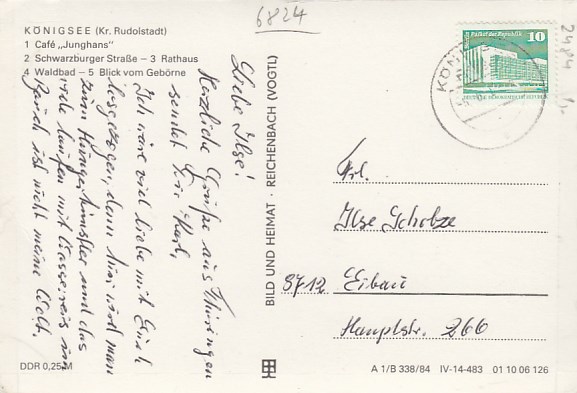 KÖNIGSEE (Kr. Rudolstadt)
1 Café „Junghans"
2 Schwarzburger Straße – 3 Rathaus
4 Waldbad – 5 Blick vom Gebörne
6824
Liebe Ilse!
Herzliche Grüße aus Thüringen
sendet Dir Karl,
Ich wäre viel lieber mit Euch
losgezogen, denn hier wird man
zum Hungerkünstler und das
viele laufen mit Wasserreis im
Bauch ist nicht meine Welt.
DDR 0,25 M
BILD UND HEIMAT · REICHENBACH (VOGTL)
Palast der Republik
10
KÖNIG
2484
Frl.
Ilse Scholze
8712 Eibau
Hauptstr. 266
A 1/B 338/84 IV-14-483 01 10 06 126